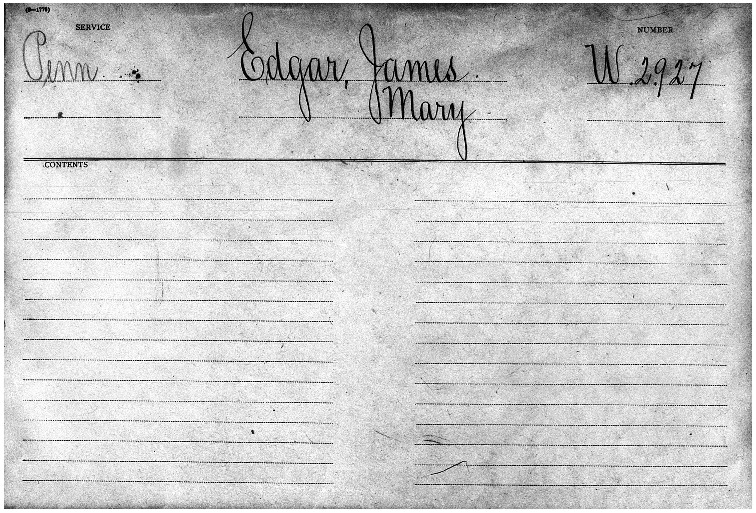 (3—1778)
SERVICE
NUMBER
Penn
Edgar, James
W. 2927
Mary
CONTENTS